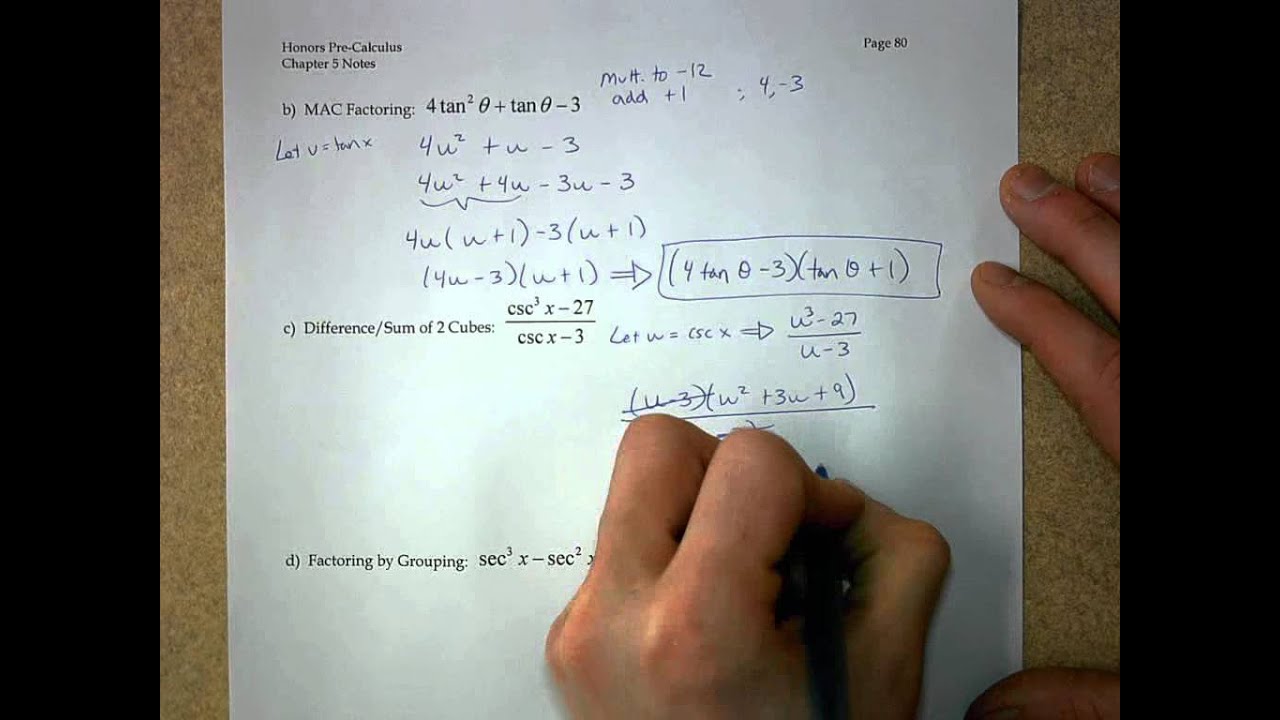 Honors Pre-Calculus Page 80
Chapter 5 Notes
b) MAC Factoring: 4 tan² θ + tan θ − 3
Mult. to -12
add +1 ; 4, -3
Let u = tan x 4u² + u - 3
4u² + 4u - 3u - 3
4u(u+1) -3(u+1)
(4u-3)(u+1) ⇒ (4 tan θ -3)(tan θ +1)
c) Difference/Sum of 2 Cubes: csc³ x − 27
csc x − 3
Let u = csc x ⇒ u³-27
u-3
(u-3)(u² +3u+9)
d) Factoring by Grouping: sec³ x − sec²